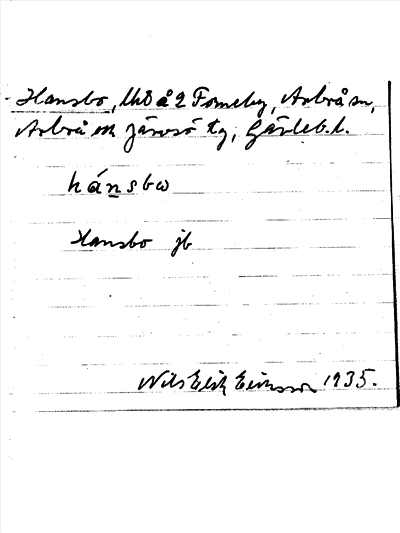 Hansbo, lht å 2 Forneby, Arbrå sn,
Arbrå och Järvsö tg, Gävleb. l.
hánsbω
Hansbo jb
Nils Erik Eriksson 1935.